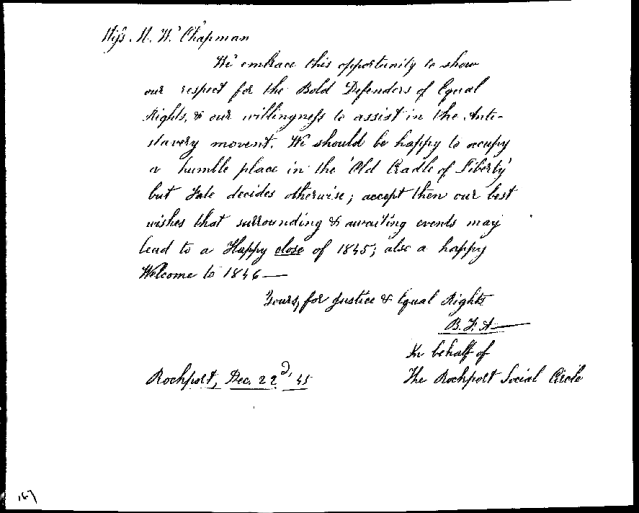 Miss M. W. Chapman
We embrace this opportunity to show
our respect for the Bold Defenders of Equal
Rights, & our willingness to assist in the Anti-
slavery movent. We should be happy to occupy
a humble place in the 'Old Cradle of Liberty'
but Fate decides otherwise; accept then our best
wishes that surrounding & awaiting events may
lead to a Happy close of 1845; also a happy
Welcome to 1846—
Yours, for Justice & Equal Rights
B. F. A—
In behalf of
Rockport, Dec. 22d, 45
The Rockport Social Circle
167